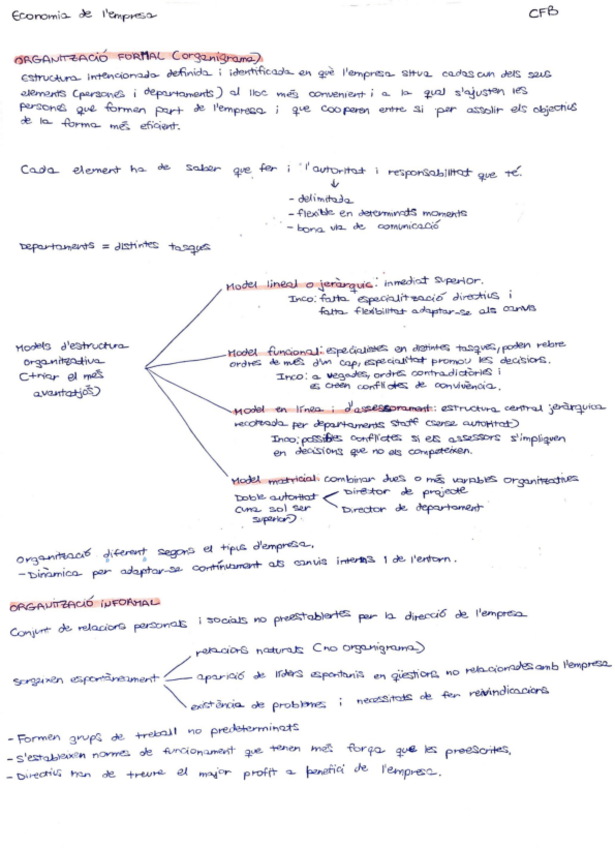 Economia de l'empresa
CFB
ORGANITZACIÓ FORMAL (organigrama)
Estructura intencionada definida i identificada en què l'empresa situa cadascun dels seus
elements (persones i departaments) al lloc més convenient i a la qual s'ajusten les
persones que formen part de l'empresa i que cooperen entre si per assolir els objectius
de la forma més eficient.
Cada element ha de saber que fer i l'autoritat i responsabilitat que té.
- delimitada
- flexible en determinats moments
- bona via de comunicació
Departaments = distintes tasques
Model lineal o jeràrquic: inmediat superior.
Inco: falta especialització directius i
falta flexibilitat adaptar-se als canvis
Models d'estructura
organitzativa
(triar el més
avantatjós)
Model funcional: especialistes en distintes tasques, poden rebre
ordres de més d'un cap, especialitat promou les decisions.
Inco: a vegades, ordres contradictòries i
es creen conflictes de convivència.
Model en línea i d'assessorament: estructura central jeràrquica
recolzada per departaments staff (sense autoritat)
Inco: possibles conflictes si els assessors s'impliquen
en decisions que no els competeixen.
Model matricial: combinar dues o més variables organitzatives
Doble autoritat
(una sol ser
superior)
Director de projecte
Director de departament
Organització diferent segons el tipus d'empresa.
- Dinàmica per adaptar-se contínuament als canvis interns i de l'entorn.
ORGANITZACIÓ INFORMAL
Conjunt de relacions personals i socials no preestablertes per la direcció de l'empresa
relacions naturals (no organigrama)
sorgeixen espontàneament
aparició de líders espontanis en qüestions no relacionades amb l'empresa
existència de problemes i necessitats de fer reivindicacions
- Formen grups de treball no predeterminats
- S'estableixen normes de funcionament que tenen més força que les preescrites.
- Directius han de treure el major profit a benefici de l'empresa.